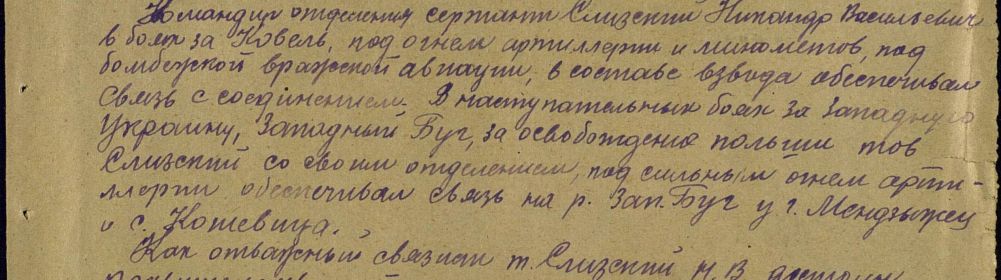 Командир отделения сержант Слизский Никандр Васильевич
в боях за Ковель, под огнем артиллерии и минометов, под
бомбежкой вражеской авиации, в составе взвода обеспечивал
связь с соединением. В наступательных боях за Западную
Украину, Западный Буг, за освобождение польши тов
Слизский со своим отделением, под сильным огнем арти-
ллерии обеспечивал связь на р. Зап. Буг у г. Мендзыжец
и с. Кошевица.
Как отважный связист т. Слизский Н. В. достоин